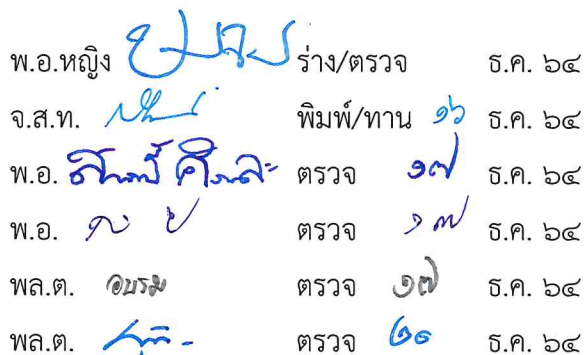 พ.อ.หญิง ร่าง/ตรวจ ธ.ค. ๖๔
จ.ส.ท. พิมพ์/ทาน ๑๖ ธ.ค. ๖๔
พ.อ. ตรวจ ๑๗ ธ.ค. ๖๔
พ.อ. ตรวจ ๑๗ ธ.ค. ๖๔
พล.ต. อบรม ตรวจ ๑๗ ธ.ค. ๖๔
พล.ต. ตรวจ ๒๐ ธ.ค. ๖๔